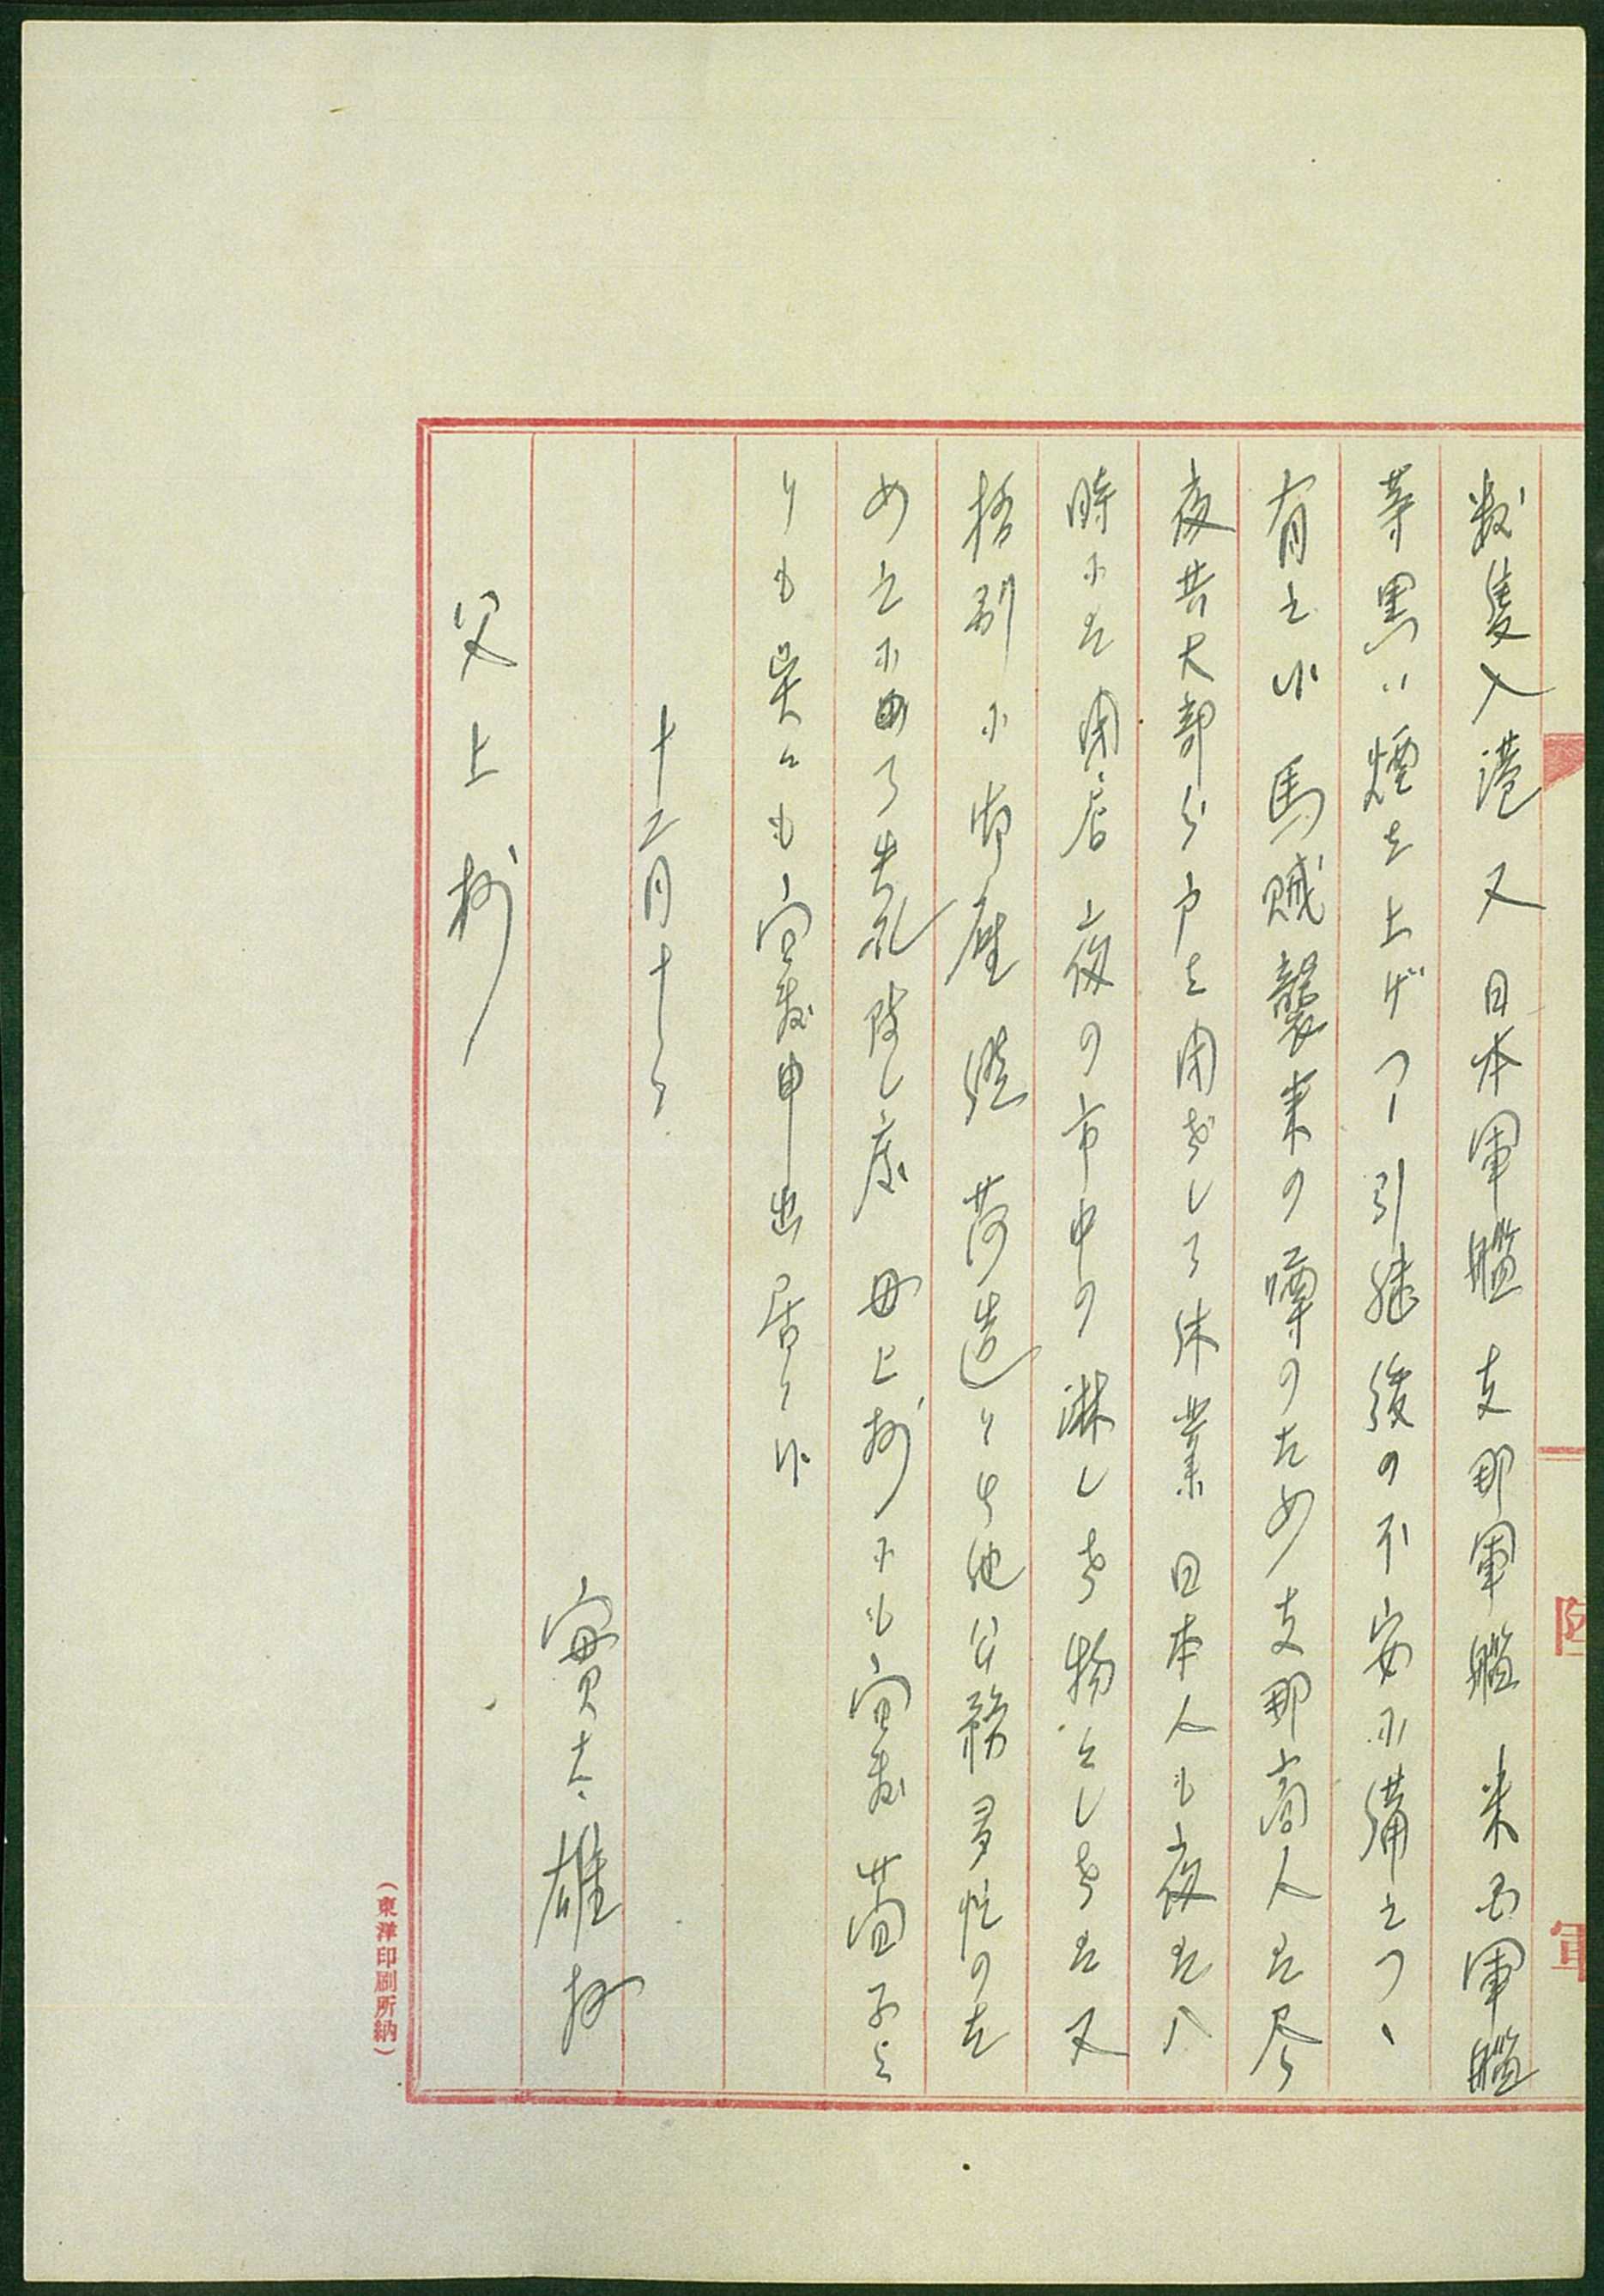 数隻入港又日本軍艦支那軍艦米国軍艦
等黒い煙を上げつゝ引継後の不安に備えつゝ
有之候 馬賊襲来の噂のため支那商人は尽
夜共大部分戸を閉ざして休業 日本人も夜は八
時には閉店 夜の市中の淋しさ物々しさは又
格別に御座候 荷造りやら他公務多忙のた
め之に母上様にも宜敷
りも呉々も宜敷申出居り候
十二月十日
實
父上様
陸軍
(東洋印刷所納)